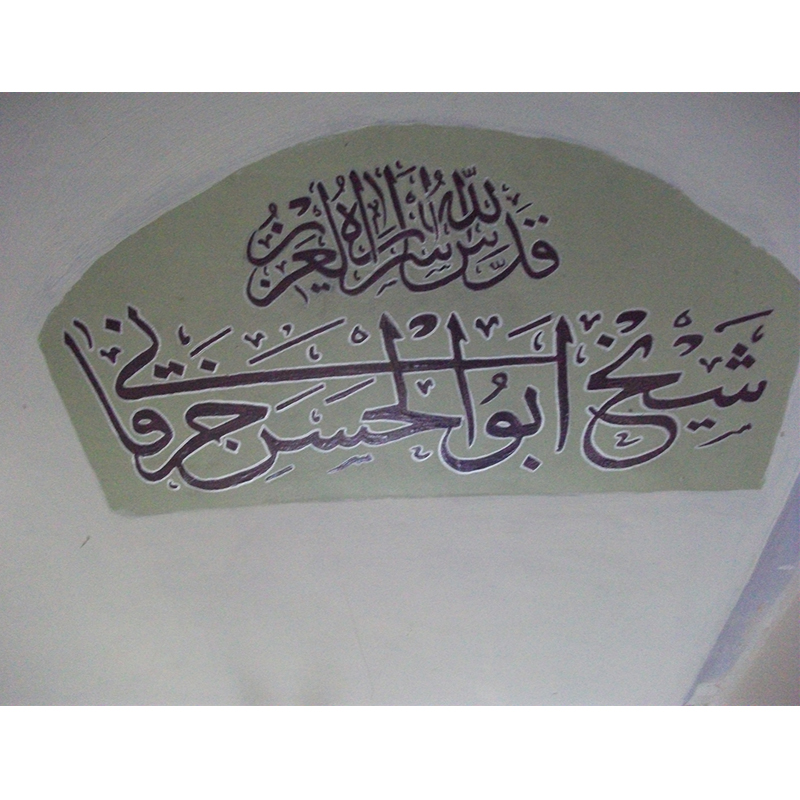 قدس الله سره العزيز
شيخ ابو الحسن خرقانى